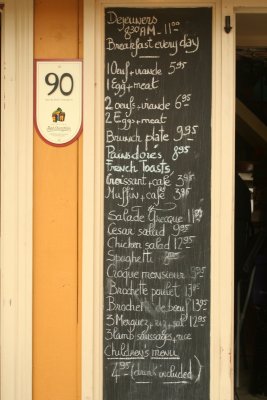 90
Dejeuners
8:30AM - 11:00
Breakfast every day
1 Oeuf + viande 5.95
1 Egg + meat
2 oeufs + viande 6.95
2 Eggs + meat
Brunch plate 9.95
Pains dorés 8.95
French Toasts
Croissant + café 3.95
Muffin + café 3.95
Salade Grecque
Cesar salad 9.95
Chicken salad 12.95
Spaghetti
Croque monsieur 9.95
Brochette poulet 13.95
Brochette de boeuf 13.95
3 Merguez, riz, sal 12.95
3 lamb sausages, rice
Children's menu
4.95 (drink included)